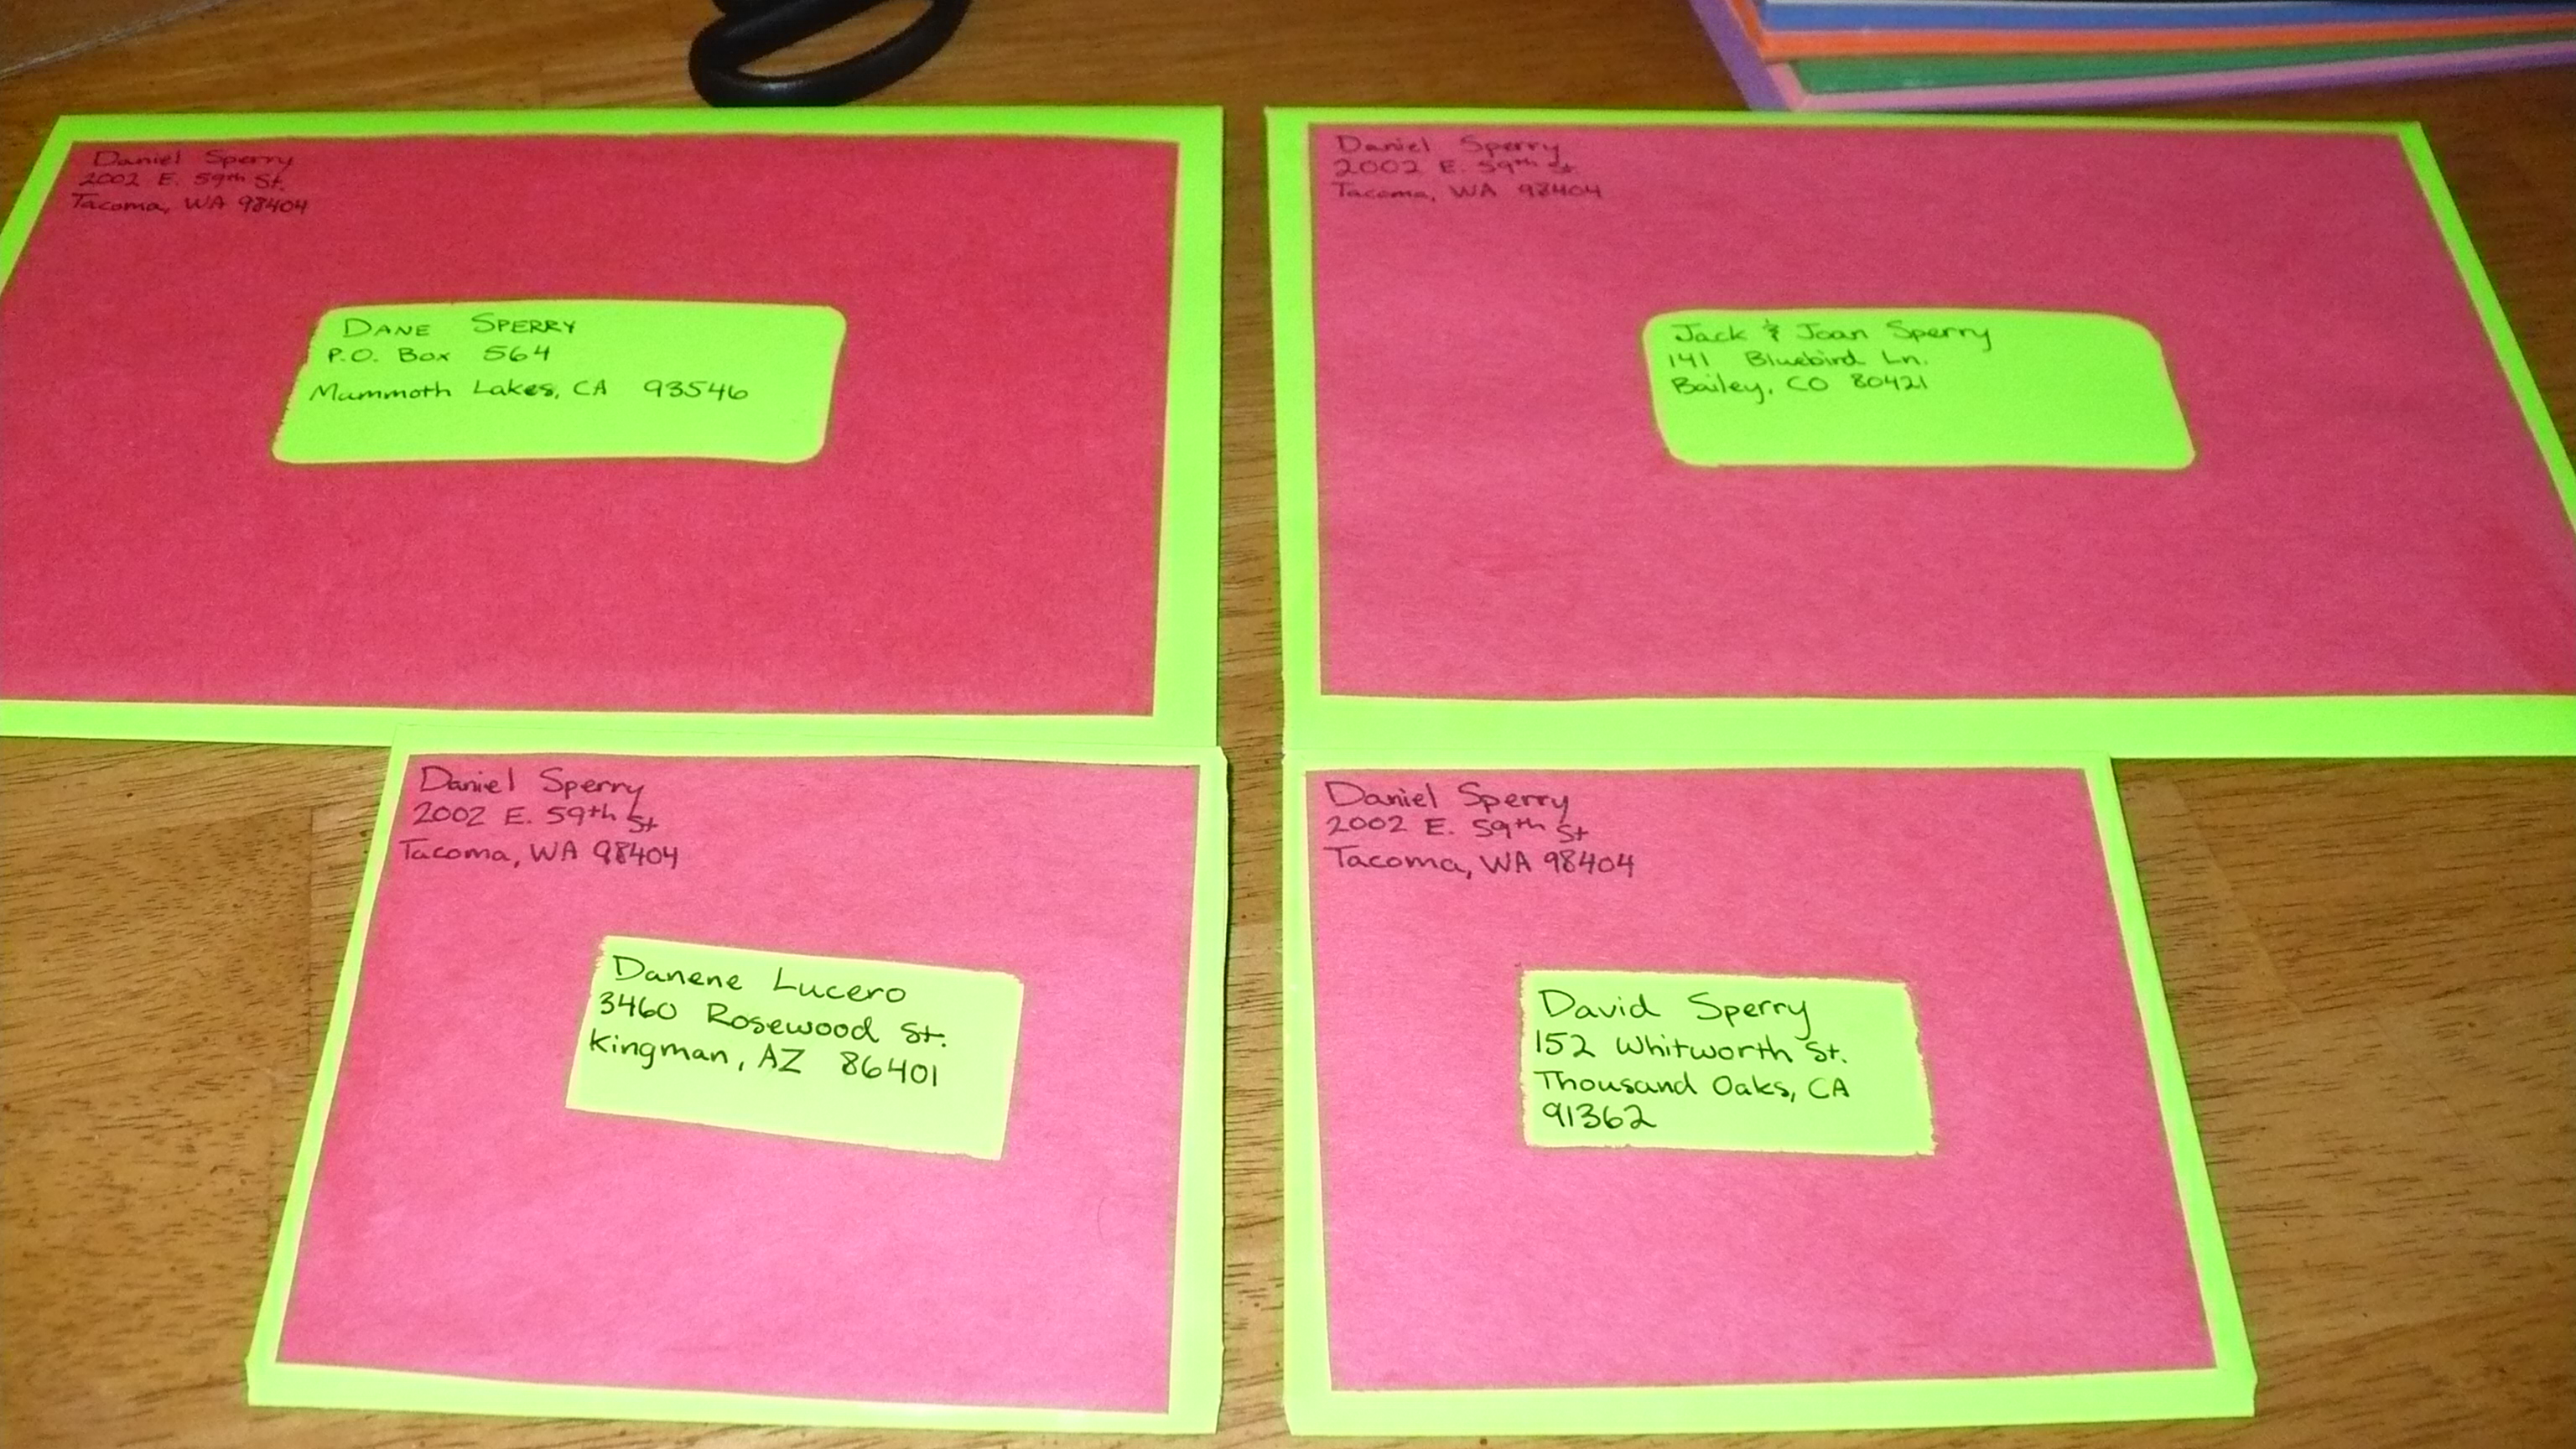 Daniel Sperry
2002 E. 59th St.
Tacoma, WA 98404
DANE SPERRY
P.O. Box 564
Mammoth Lakes, CA 93546
Daniel Sperry
2002 E. 59th St.
Tacoma, WA 98404
Jack & Joan Sperry
141 Bluebird Ln.
Bailey, CO 80421
Daniel Sperry
2002 E. 59th St
Tacoma, WA 98404
Danene Lucero
3460 Rosewood St.
Kingman, AZ 86401
Daniel Sperry
2002 E. 59th St
Tacoma, WA 98404
David Sperry
152 Whitworth St.
Thousand Oaks, CA
91362